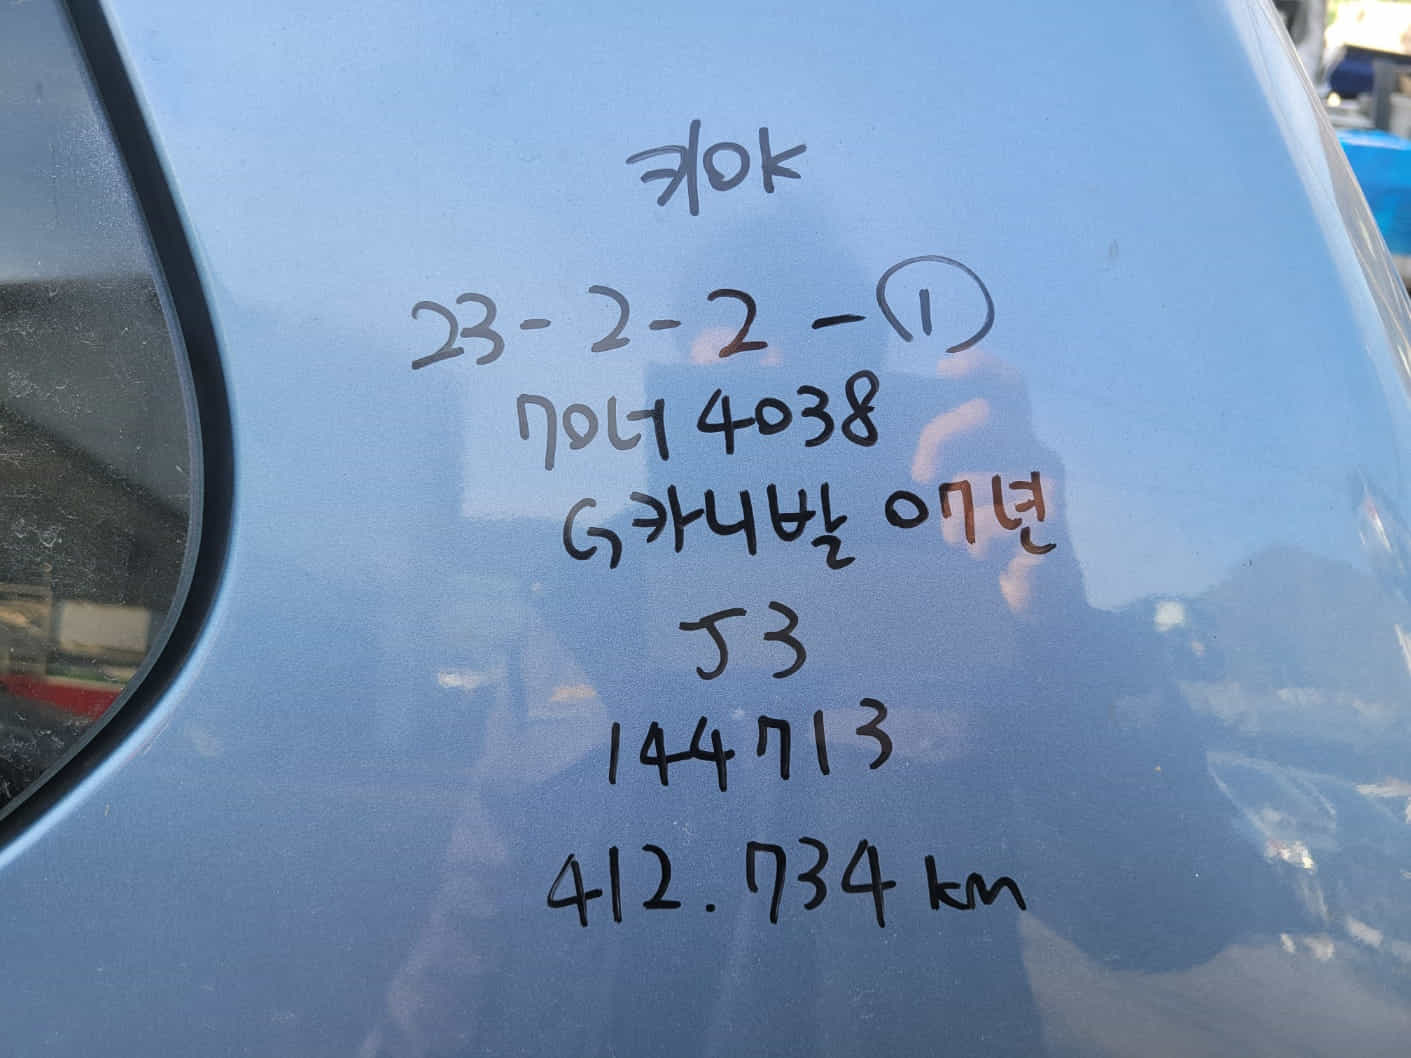 키OK
23-2-2-①
70너 4038
G카니발 07년
J3
144713
412.734 km